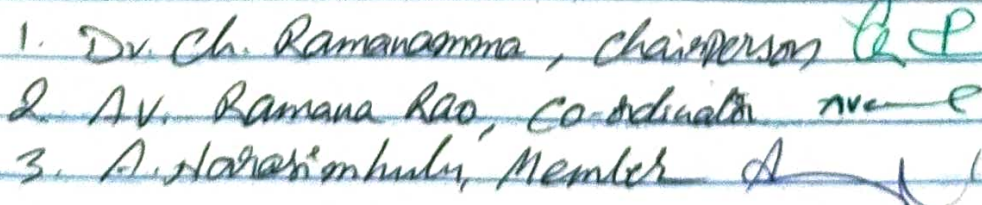 1. Dr. Ch. Ramanamma, Chairperson
2. AV. Ramana Rao, Co-ordinator
3. A. Narasimhulu, Member